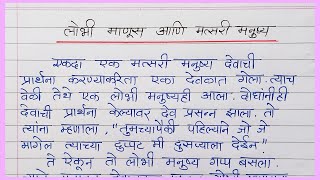 लोभी माणूस आणि मत्सरी मनुष्य
एकदा एक मत्सरी मनुष्य देवाची
प्रार्थना करण्याकरिता एका देवळात गेला. त्याच
वेळी तेथे एक लोभी मनुष्यही आला. दोघांनीही
देवाची प्रार्थना केल्यावर देव प्रसन्न झाला. तो
त्यांना म्हणाला, "तुमच्यापैकी पहिल्याने जो जे
मागेल त्याच्या दुप्पट मी दुसऱ्याला देईन"
ते ऐकून तो लोभी मनुष्य गप्प बसला.